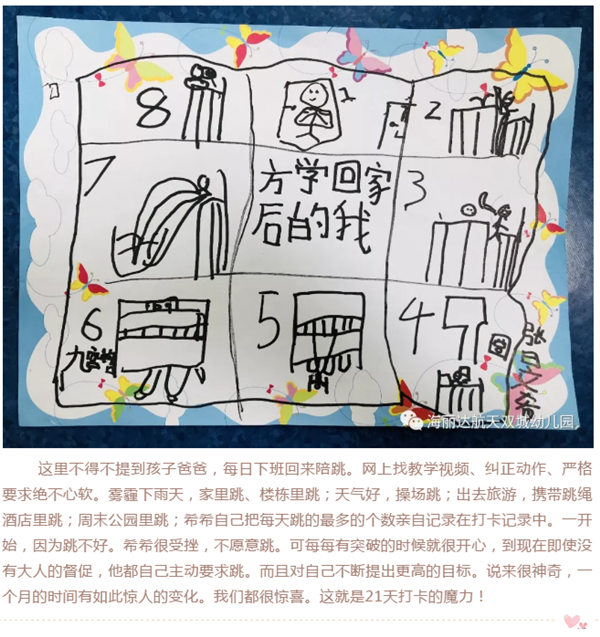 8 1 2
7 方学回家 3
后的我
6 5 4
九宫格
海丽达航天双城幼儿园
这里不得不提到孩子爸爸，每日下班回来陪跳。网上找教学视频、纠正动作、严格
要求绝不心软。雾霾下雨天，家里跳、楼栋里跳；天气好，操场跳；出去旅游，携带跳绳
酒店里跳；周末公园里跳；希希自己把每天跳的最多的个数亲自记录在打卡记录中。一开
始，因为跳不好。希希很受挫，不愿意跳。可每每有突破的时候就很开心，到现在即使没
有大人的督促，他都自己主动要求跳。而且对自己不断提出更高的目标。说来很神奇，一
个月的时间有如此惊人的变化。我们都很惊喜。这就是21天打卡的魔力！